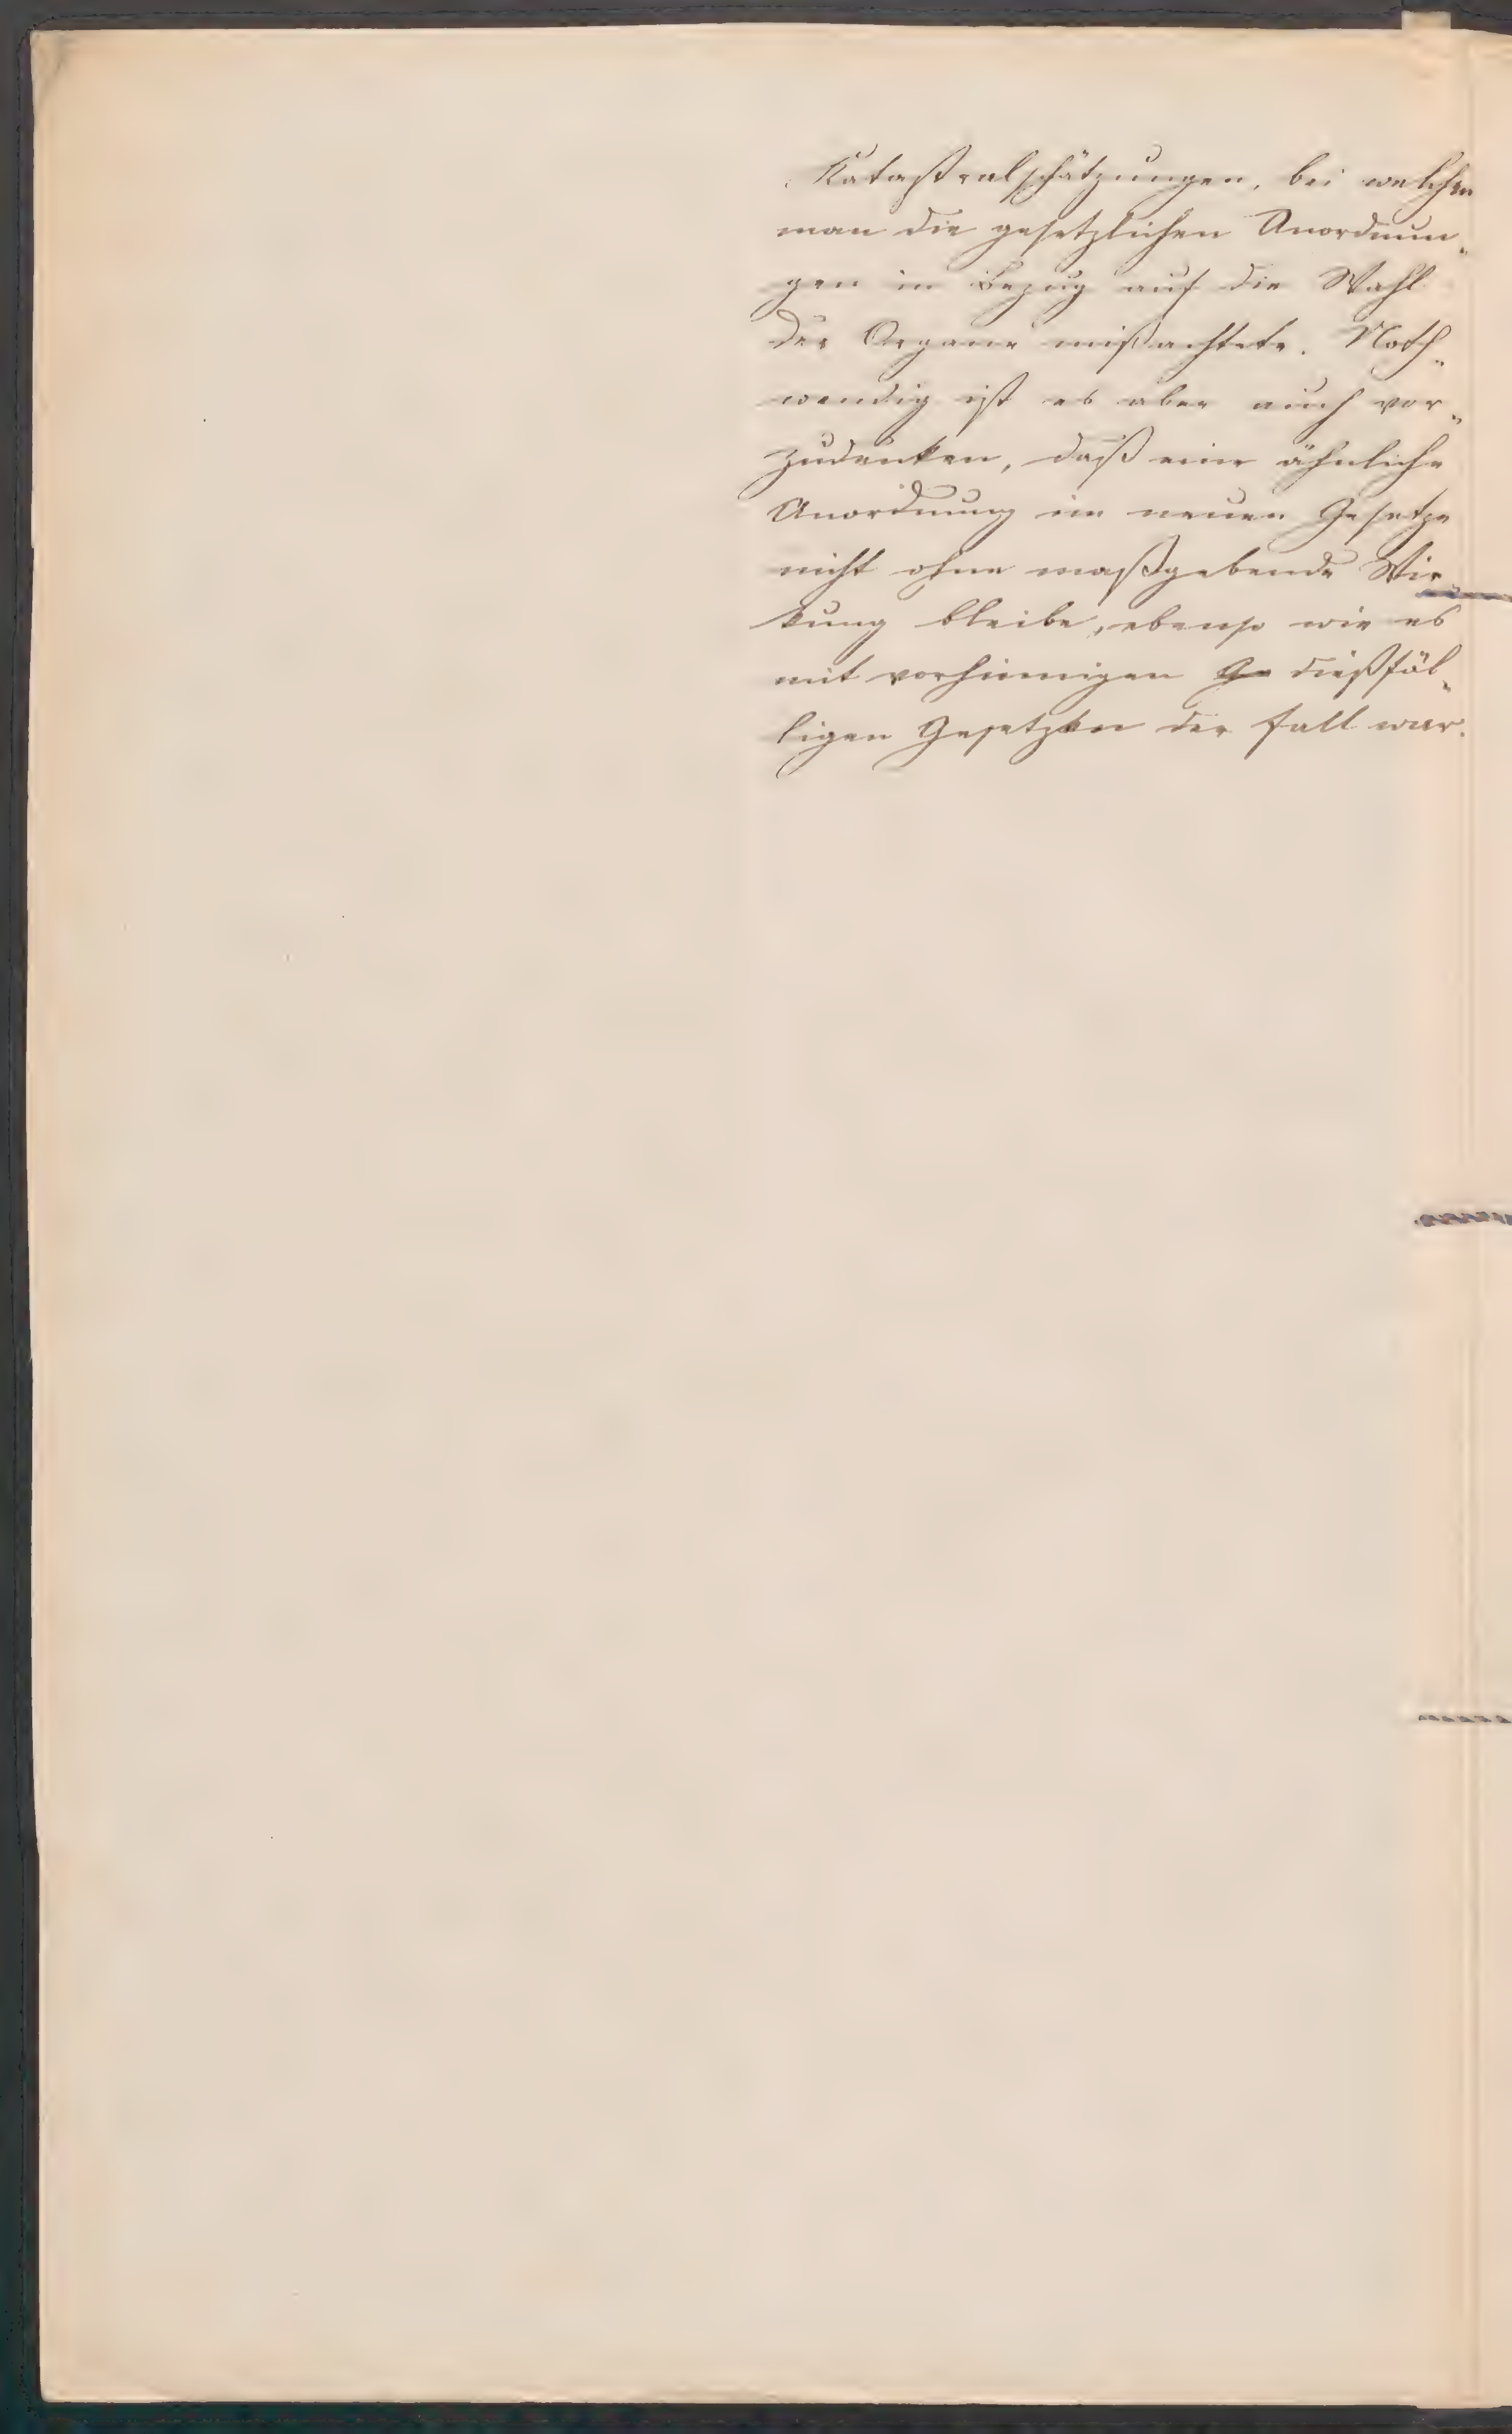 Katastralschätzungen, bei welchen
man die gesetzlichen Anordnun„
gen in Bezug auf die Wahl
der Organe mißachtete. Noth„
wendig ist es aber auch vor„
zudenken, daß eine ähnliche
Anordnung im neuen Gesetze
nicht ohne maßgebende Wir„
kung bleibe, ebenso wie es
mit vorhinnigen Ge dießfäl„
ligen Gesetzen der Fall war.